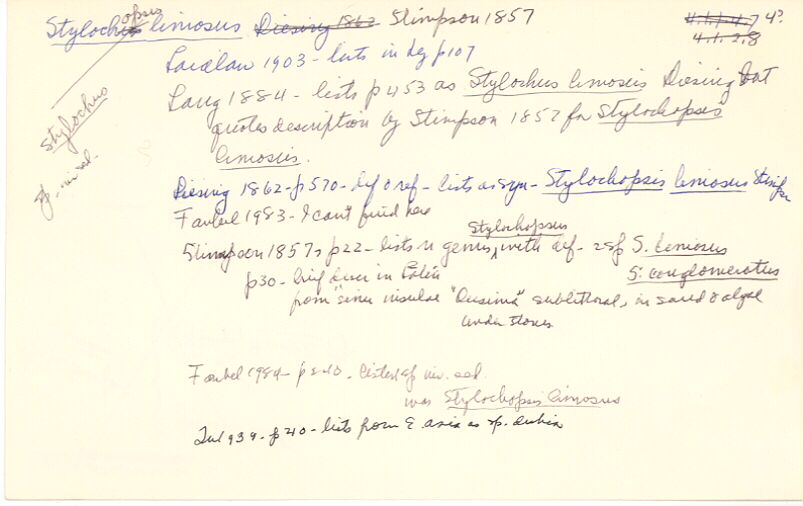 Stylochopsis limosus Diesing 1862 Stimpson 1857
4.1.1.4.7 4?
4.1.2.8
Stylochus
sp. inval.
Laidlaw 1903 - lists in key p107
Lang 1884 - lists p453 as Stylochus limosus Diesing but
quotes description by Stimpson 1857 for Stylochopsis
limosus.
Diesing 1862 - p570 - def & ref - lists as syn - Stylochopsis limosus Stimpson
Faubel 1983 - I can't find here
Stylochopsis
Stimpson 1857, p22 - lists n genus, with def - 2 sp S. limosus
S. conglomeratus
p30 - brief descr in Latin
from "sinu insulae "Ousima" sublittoral, in sand & algae
under stones
Faubel 1984 - p240 - listed sp inval.
was Stylochopsis limosus
1939 - p40 - lists from E. Asia as sp. dubia